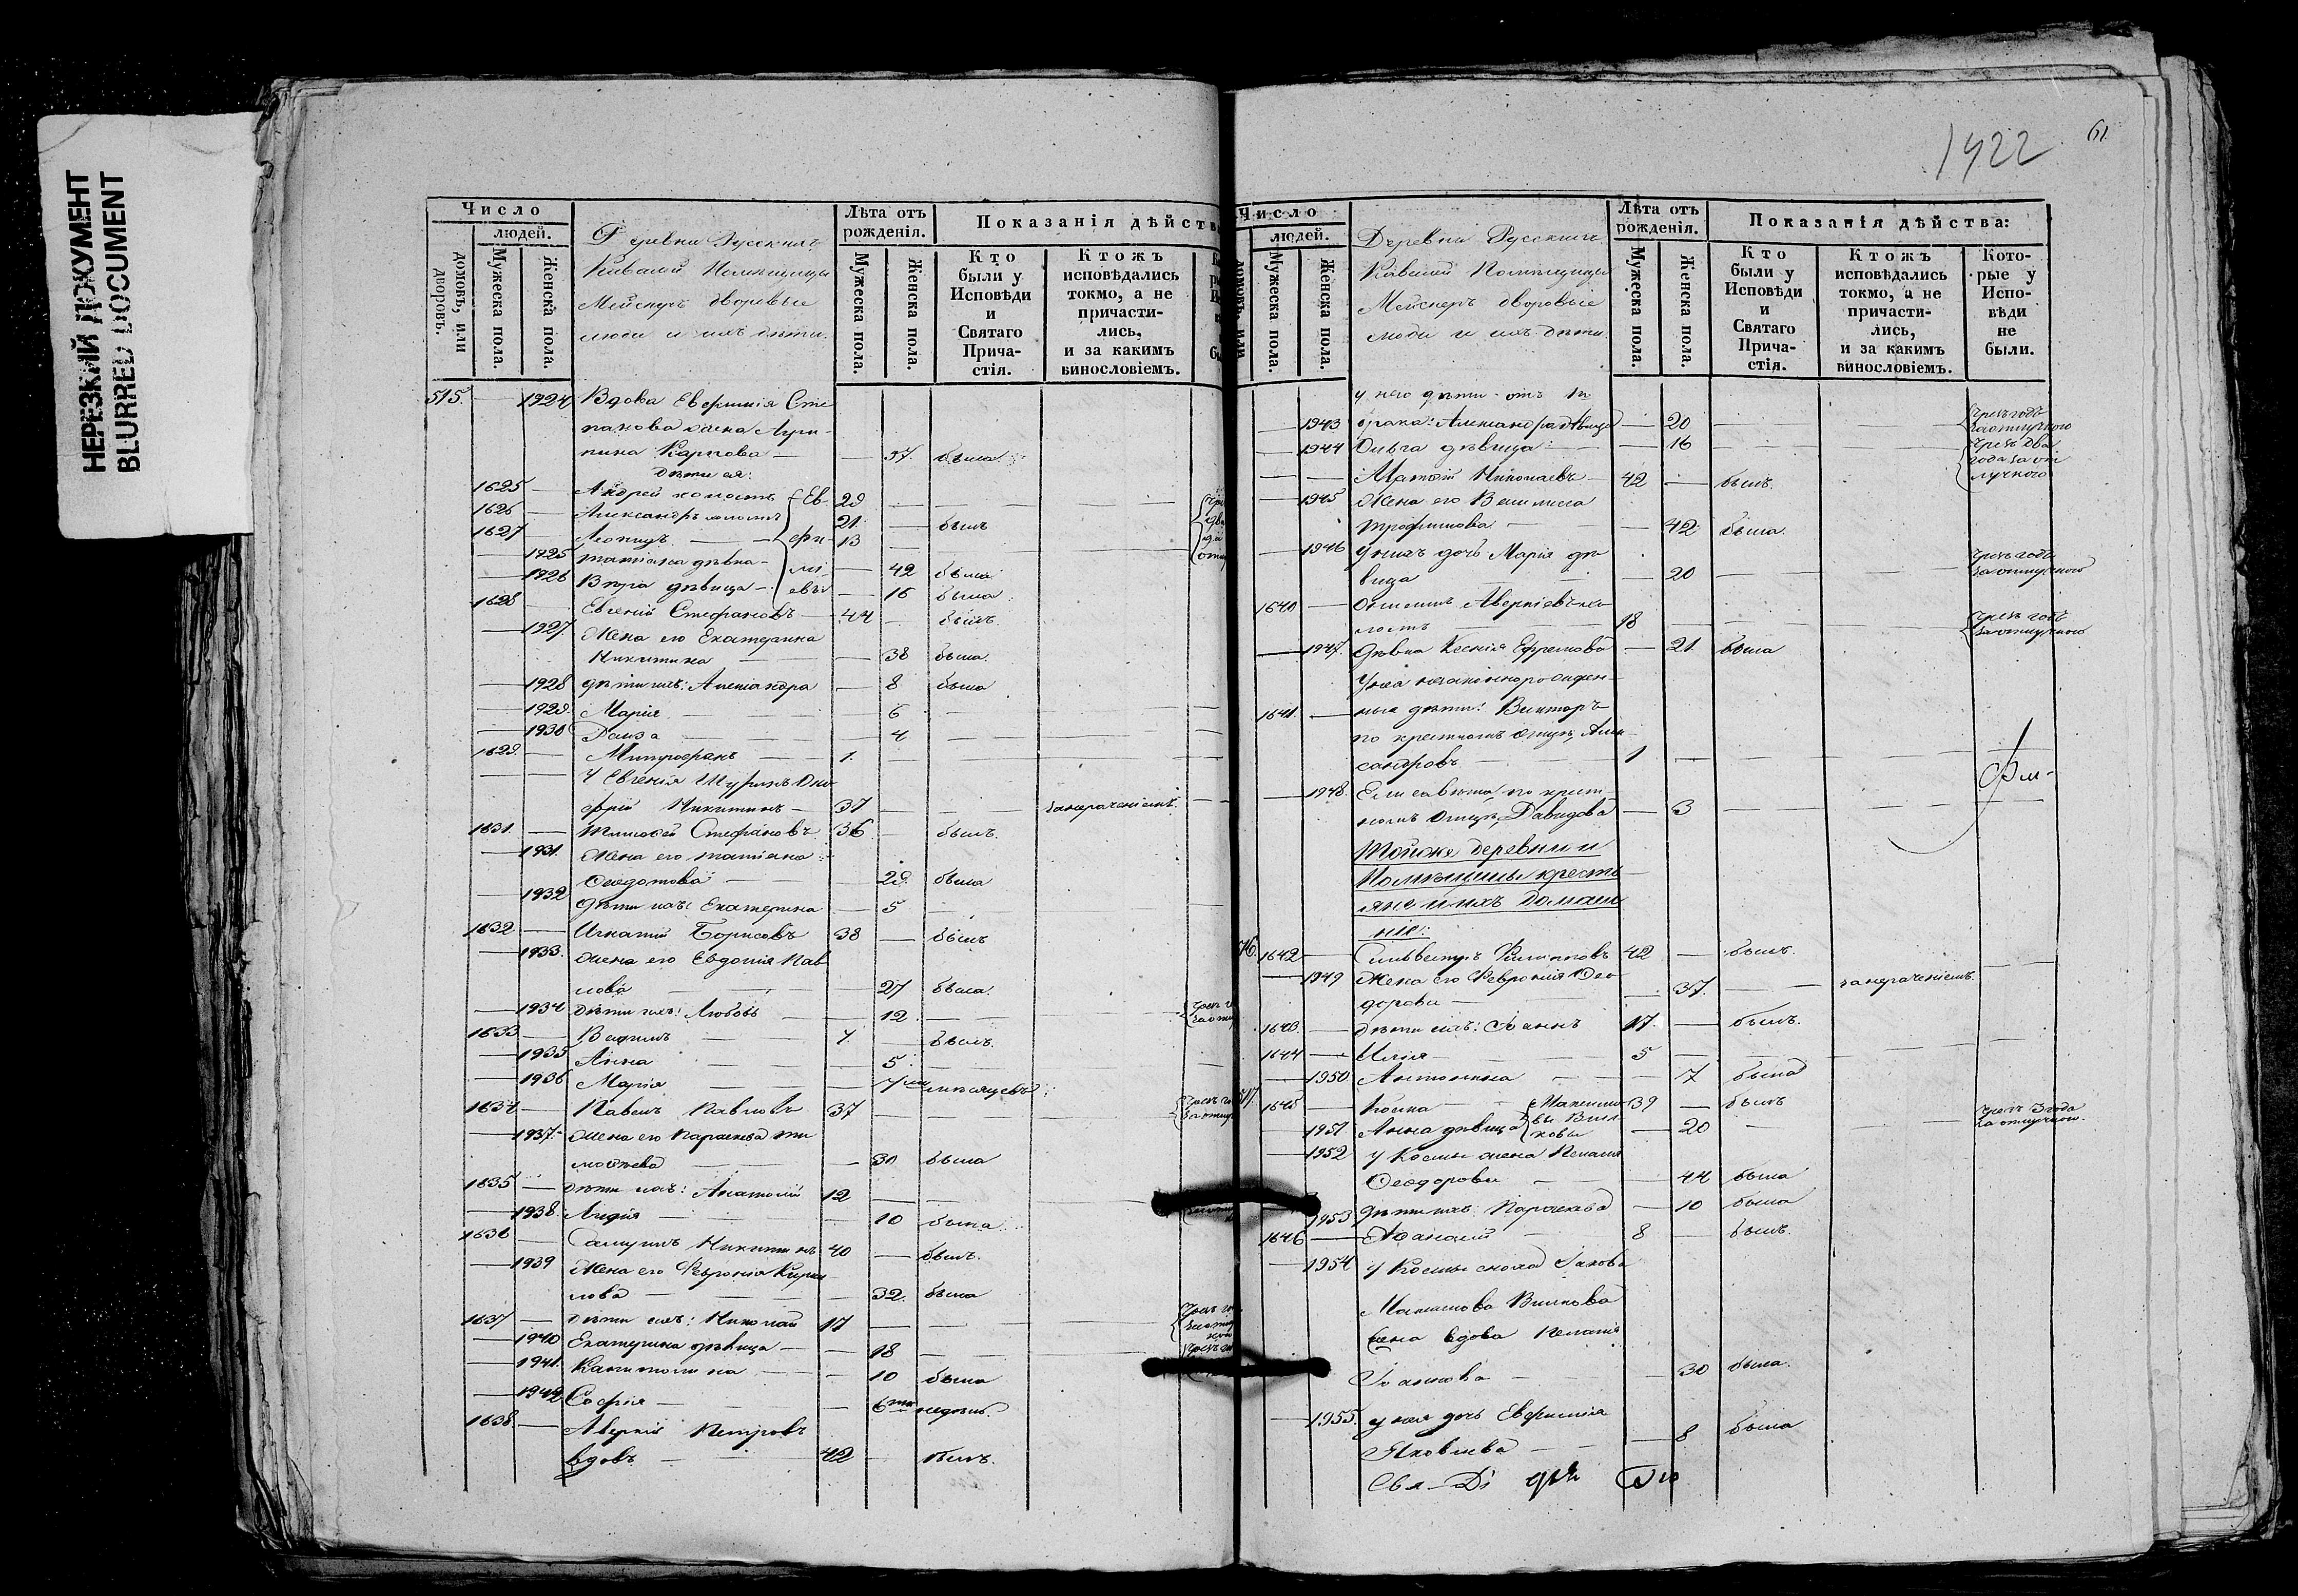 НЕРЕЗКИЙ ДОКУМЕНТ
BLURRED DOCUMENT
Число
людей.
домовъ, или дворовъ.
Мужеска пола.
Женска пола.
Деревни Русскихъ
Кавалей Помѣщицы
Мейснеръ дворовые
люди и ихъ дѣти.
Лѣта отъ рожденія.
Мужеска пола.
Женска пола.
Показанія дѣйств
Кто были у Исповѣди и Святаго Прича-стія.
Ктожъ исповѣдались токмо, а не причасти-лись, и за какимъ винословіемъ.
515. — 1924 Вдова Евфимія Сте
панова жена Агри-
пина Карпова — — 57. была.
Дѣти ея:
1625 — Андрей холостъ 29 — —
1626 — Александръ холостъ 21. — былъ
1627 Леонидъ — 13 —
Ев-
фи-
мі-
евы
— 1925 Татіана дѣвка — — 42 была
— 1926 Вѣра дѣвица — — 16 была
1628 — Евгеній Стефановъ — 44 — былъ.
— 1927. Жена его Екатерина
Никитина — — 38 была.
— 1928 дѣти ихъ: Александра — 8 была
— 1929. Марія — — 6 —
— 1930 Раиза — — 4 —
1629. — Митрофанъ — 1. —
— — У Евгенія Шуринъ Ono
фрій Никитинъ — 37 — — занераченіемъ.
1631. — Тимофей Стефановъ 36 — былъ.
— 1931. Жена его Татіана
Ѳеодотова — — 29. была
— 1932 Дѣти ихъ: Екатерина — 5 —
1632 — Игнатій Борисовъ 38 — былъ
— 1933. жена его Евдокія Пав
лова — — 27 была.
— 1934 дѣти ихъ: Любовь — — 12 —
1633 — Вадимъ — 7. — былъ.
— 1935 Анна — — 5 —
— 1936 Марія — — 7ми мѣсяцевъ
1634 — Павелъ Павловъ 37 — —
— 1937. жена его Параскева Ти
моѳеева — — 30 была
1635 — дѣти ихъ: Анатолій 12 —
— 1938. Лидія — — 10 была
1636 — Самуилъ Никитинъ 40 — былъ.
— 1939 Жена его Февронія Кири
лова — — 32. была
1637 — дѣти ихъ: Николай 17 — —
— 1940 Екатерина дѣвица — — 18 —
— 1941. Капитолина — — 10 была
— 1942 Софія — — 6ти недѣль.
1638. — Аверкій Петровъ
вдовъ — 42 — былъ.
1422
61
Число
людей.
домовъ, или
Мужеска пола.
Женска пола.
Деревни Русскихъ
Кавалей Помѣщицы
Мейснеръ дворовые
люди и ихъ дѣти.
Лѣта отъ рожденія.
Мужеска пола.
Женска пола.
Показанія дѣйства:
Кто были у Исповѣди и Святаго Прича-стія.
Ктожъ исповѣдались токмо, а не причасти-лись, и за какимъ винословіемъ.
Кото-рые у Испо-вѣди не были.
у него дѣти отъ 1го
— 1943 брака: Александра дѣвица — 20 — — Чрезъ годъ за отлучкою
— 1944 Ольга дѣвица — — 16 — — Чрезъ два года за отлучкою
— — Матѳій Николаевъ 42 — былъ.
— 1945 Жена его Василиса
Трофимова — — 42. была.
— 1946 У нихъ дочь Марія дѣ
вица — — 20 — — Чрезъ годъ за отлучкою
1640 — Филиппъ Аверкіевъ хо
лостъ — 18 — — Чрезъ годъ за отлучкою
— 1947. Дѣвка Ксенія Ефремова — 21. была
У нея незаконнорожден-
1641. — ные дѣти: Викторъ
по крестномъ отцѣ, Алек-
сандровъ — 1 —
— 1948. Елисавета, по крест-
номъ отцѣ, Давидова — 3 —
Тойже деревни и
Помѣщицы кресть-
яне и ихъ домаш
ніе:
516. 1642 — Сильвестръ Филипповъ 42 — былъ.
— 1949 Жена его Февронія Ѳео-
дорова — — 37. — занераченіемъ.
1643. — дѣти ихъ: Іоаннъ 17. — былъ.
1644 — Илія — 5 —
— 1950 Антонина — — 7 была
517. 1645 — Косма — 39 — былъ
— 1951 Анна дѣвица — 20 — — Чрезъ 3 года за отлучкою.
— 1952 У Космы жена Пелагія
Ѳеодорова — — 44 была
— 1953 Дѣти ихъ: Параскева — 10 была
1646 — Аѳанасій — 8 — былъ.
— 1954 У Космы сноха Іакова
Максимова Вилкова
жена вдова Пелагія
Іоаннова — — 30 была.
— 1955. у нея дочь Евфимія
Яковлева — — 8 была